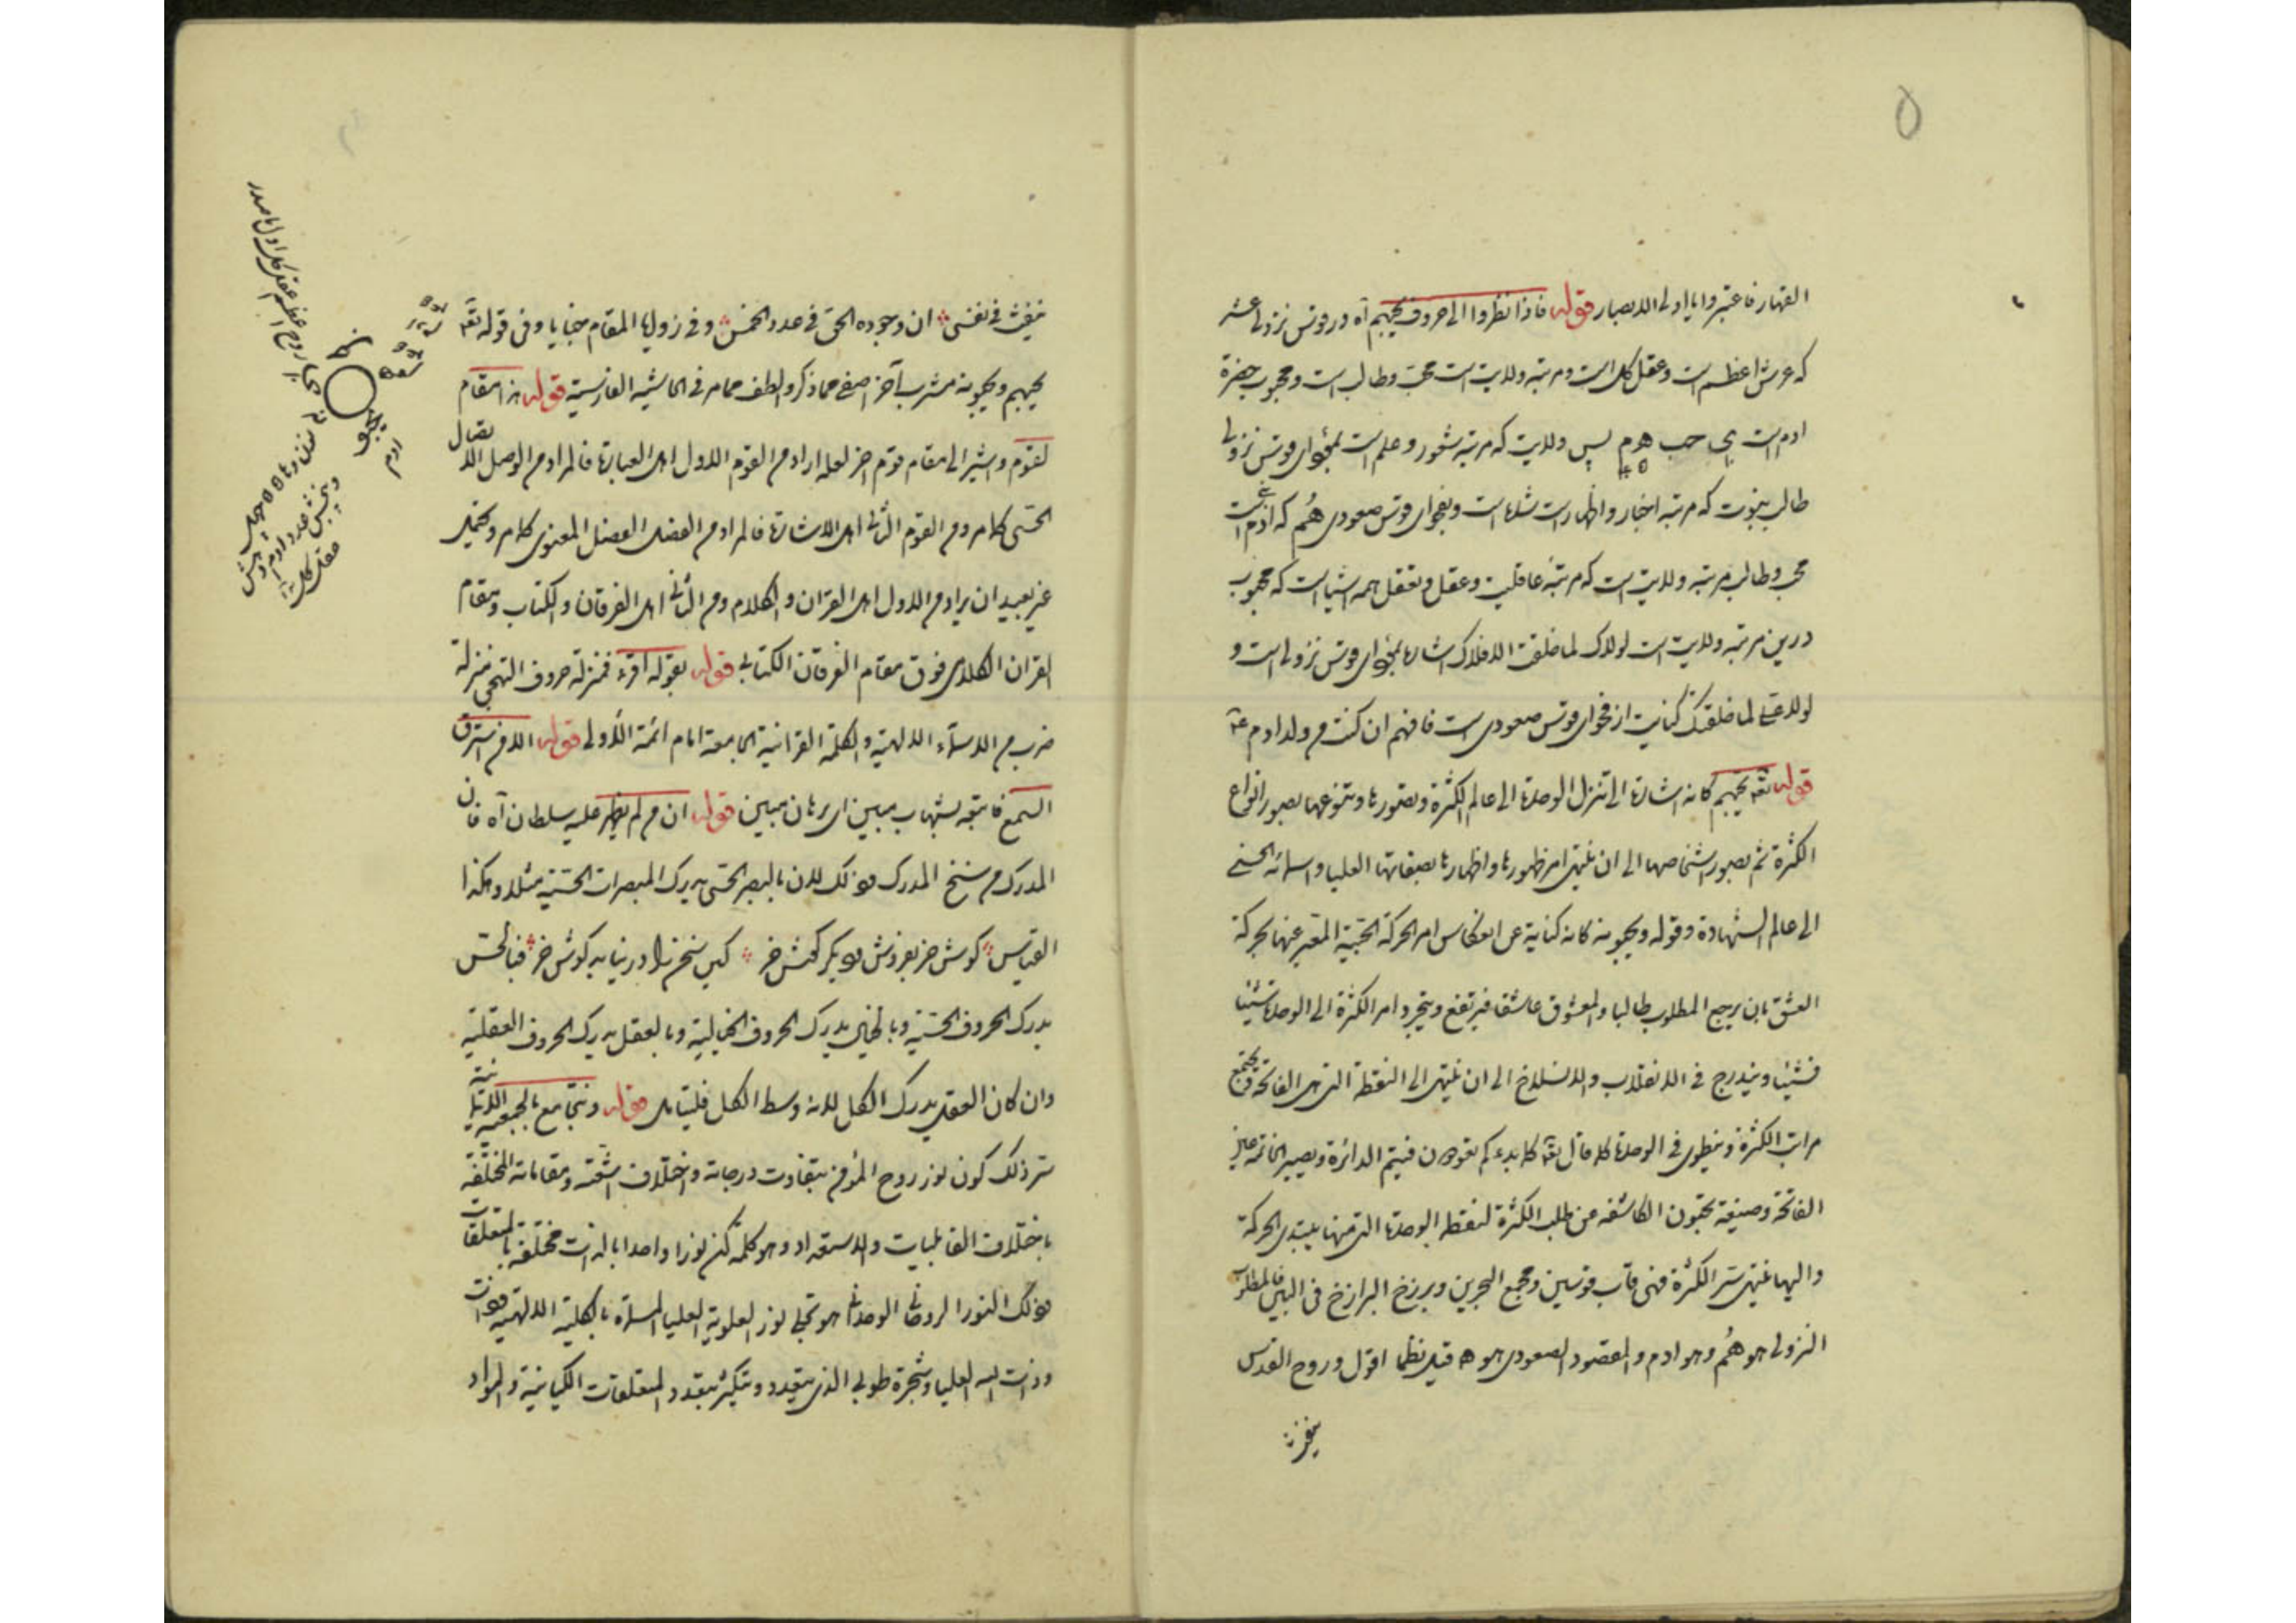 ۵
القهار فاعتبروا يا اولى الابصار قوله فاذا نظروا الى حروف يحبهم آه در قوس نزولى عشر
كه عرش اعظم است وعقل كل است ومرتبه ولايت است محب وطالب است ومحبوب حضرة
ادم است ى حب هم پس ولايت كه مرتبه شعور وعلم است بفحواى قوس نزولى
طالب نبوت كه مرتبه اخبار واظهار است شده است وبفحواى قوس صعودى هم كه ادم است
محب وطالب مرتبه ولايت است كه مرتبه عاقليت وعقل وتعقل همه اشيا است كه محبوب
درين مرتبه ولايت است لولاك لما خلقت الافلاك اشاره بفحواى قوس نزولى است و
لولا على لما خلقتك كنايت از فحواى قوس صعودى است فافهم ان كنت من ولد ادم
قوله تعه يحبهم كانه اشارة الى تنزل الوحدة الى عالم الكثرة وتصورها وتنوعها بصور انواع
الكثرة ثم بصور اشخاصها الى ان ينتهى امر ظهورها واظهارها بصفاتها العليا واسمائه الحسنى
الى عالم الشهادة وقوله ويحبونه كانه كناية عن انعكاس امر الحركة الحبية المعبر عنها بحركة
العشق بان يرجع المطلوب طالبا والمعشوق عاشقا فيرتفع ويتجرد امر الكثرة الى الوحدة شيئا
فشيئا ويندرج فى الانقلاب والانسلاخ الى ان ينتهى الى النقطة التى هى الفاتحة فيجتمع
مراتب الكثرة وينطوى فى الوحدة كما قال تعه كما بدءكم تعودون فيتم الدائرة ويصير الخاتمة عين
الفاتحة وصيغة يحبون الكاشفة عن طلب الكثرة لنقطة الوحدة التى منها يبتدى الحركة
واليها ينتهى ستر الكثرة فهى قاب قوسين ومجمع البحرين وبرزخ البرازخ فى البين فالمطلوب
النزولى هو هم وهو ادم والمقصود الصعودى هو ه قيل نظما اقول وروح القدس
ينفث
ينفث فى نفسى ان وجوده الحق فى عدد الخمس وفى زوايا المقام خبايا وفى قوله تعه
يحبهم ويحبونه مشرب آخر اصفى مما ذكر والطف مما مر فى الحاشية الفارسية قوله هذا مقام
لقوم واشير الى مقام قوم اخر لعله اراد من القوم الاول اهل العبارة فالمراد من الوصل الاتصال
الحسى كما مر ومن القوم الثانى اهل الاشارة فالمراد من الفصل الفصل المعنوى كما مر ويحتمل
غير بعيد ان يراد من الاول اهل القران والكلام ومن الثانى اهل الفرقان والكتاب ومقام
القران الكلامى فوق مقام الفرقان الكتابى قوله بقوله اقرء فمنزلة حروف التهجى منزلة
ضرب من الاسماء الالهية والكلمة القرانية الجامعة امام ائمة الاولى قوله الا من استرق
السمع فاتبعه شهاب مبين اى برهان مبين قوله ان من لم يظهر عليه سلطان آه فان
المدرك من سنخ المدرك وذلك لان بالبصر الحسى يدرك المبصرات الحسية مثلا وهكذا
القياس گوش خر بفروش وديگر گوش خر كين سخن را در نيابد گوش خر فبالحس
يدرك الحروف الحسية وبالخيال يدرك الحروف الخيالية وبالعقل يدرك الحروف العقلية
وان كان العقل يدرك الكل لانه وسط الكل فليتامل قوله ويتجامع بالجمعية
سر ذلك كون نور روح المؤمن بتفاوت درجاته واختلاف اشعته ومقاماته المختلفة
باختلاف القابليات والاستعداد وهو كلمة كن نورا واحدا بالذات مختلفة بالمتعلقات
وذلك النور الروحانى الوحدانى هو تجلى نور العلوية العليا المسماة بالكلية الالهية
وذات الله العليا وشجرة طوبى الذى يتعدد ويتكثر بتعدد المتعلقات الكيانية والمواد
ادم